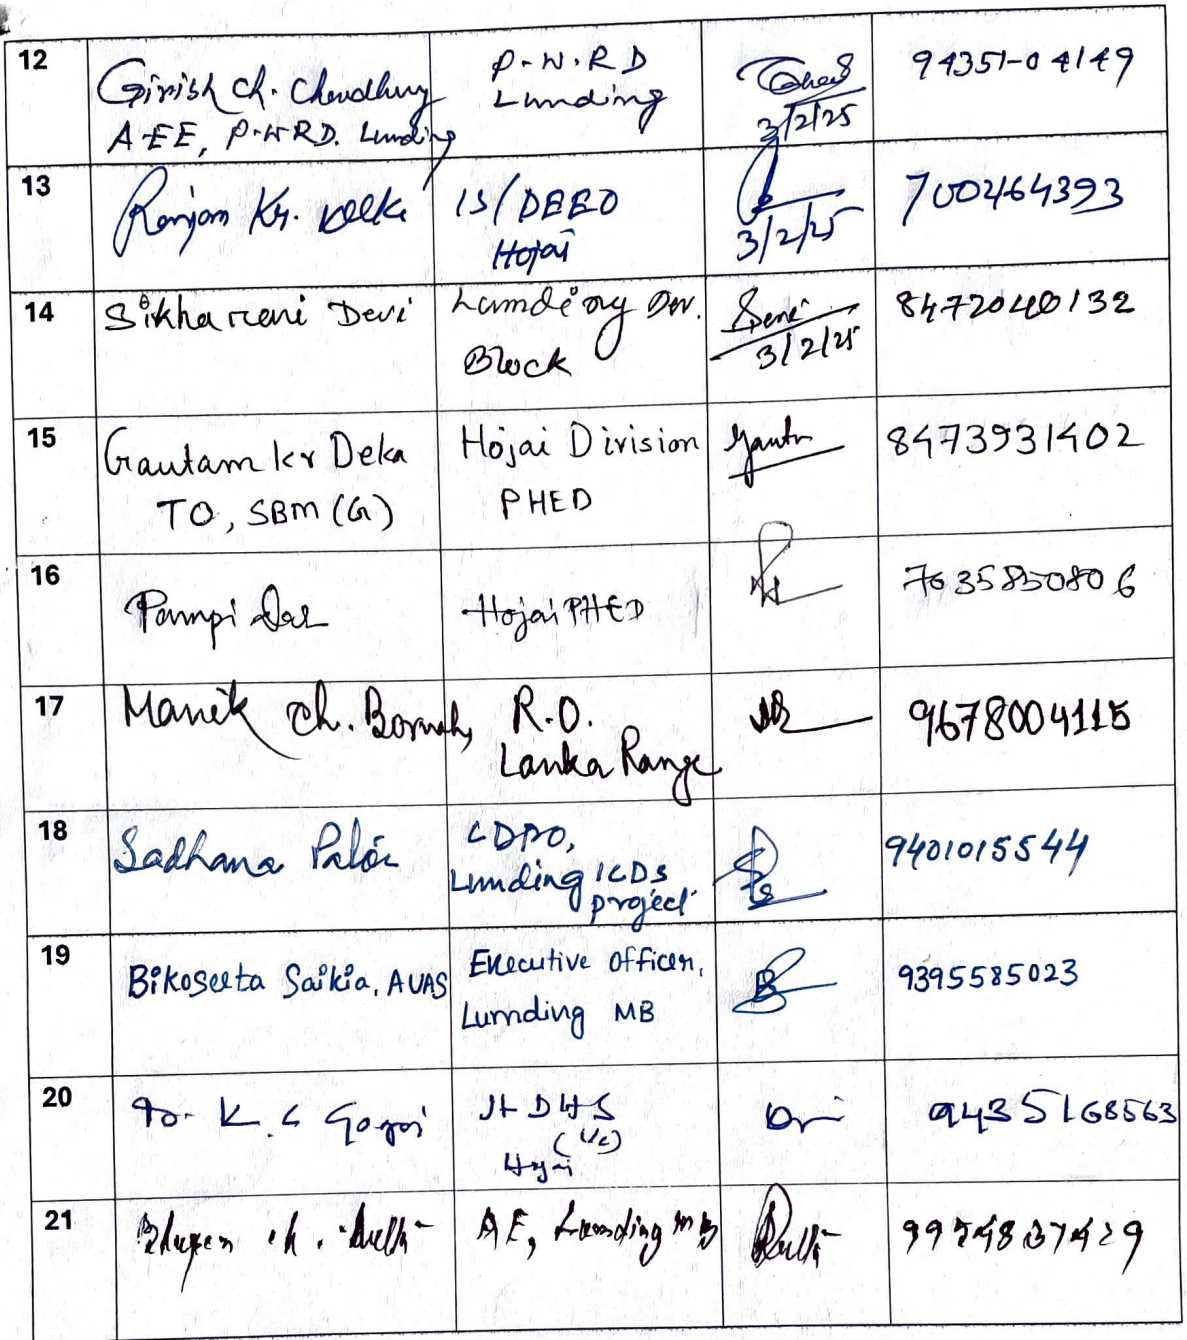 12
Girish Ch. Choudhury
A.EE, P.W.RD. Lumding
P.W.RD
Lumding
3/2/25
94351-04149
13
Ranjan Kr.
IS/DEEO
Hojai
3/2/25
7002464393
14
Sikha rani Devi
Lumding Dev.
Block
3/2/25
8472040132
15
Gautam kr Deka
TO, SBM (G)
Hojai Division
PHED
8473931402
16
Pampi Das
Hojai PHED
7635850806
17
Manik ch. Bornah,
R.O.
Lanka Range
9678004115
18
Sadhana
CDPO,
Lumding ICDS
project
9401015544
19
Bikoseeta Saikia, AUAS
Executive Officer,
Lumding MB
9395585023
20
Dr. K. C Gogoi
Jt DHS
(i/c)
Hojai
9435168563
21
Bhupen ch.
AE, Lumding MB